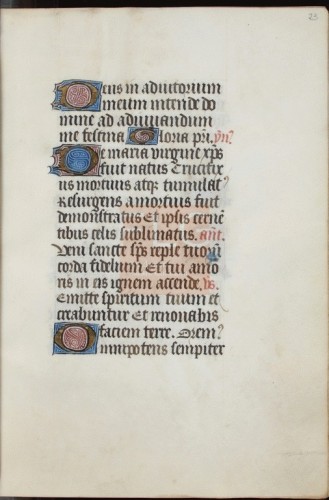 23
Deus in adiutorium
meum intende do
mine ad adiuuandum
me festina Gloria pri. ÿn?
De maria uirgine xp̄s
fuit natus Crucifix
us mortuus atqꝫ tumulat?
Resurgens a mortuis fuit
demonstratus Et ipsis cernē
tibus celis sublimatus. ant.
Veni sancte sp̄s reple tuorū
corda fidelium Et tui amo
ris in eis ignem accende. vs.
Emitte spiritum tuum et
creabuntur Et renouabis
faciem terre. Orem?
Omnipotens sempiter